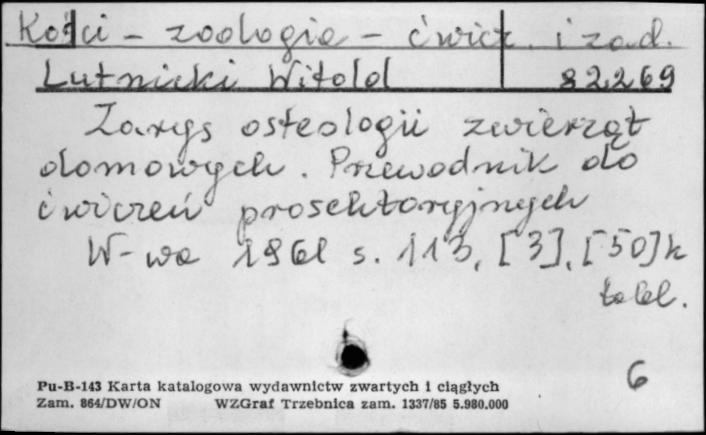 Kości - zoologia - ćwicz. i zad.
Lutnicki Witold 82269
Zarys osteologii zwierząt
domowych. Przewodnik do
ćwiczeń prosektoryjnych
W-wa 1961 s. 113, [3], [50] k
tabl.
6
Pu-B-143 Karta katalogowa wydawnictw zwartych i ciągłych
Zam. 864/DW/ON WZGraf Trzebnica zam. 1337/85 5.980.000